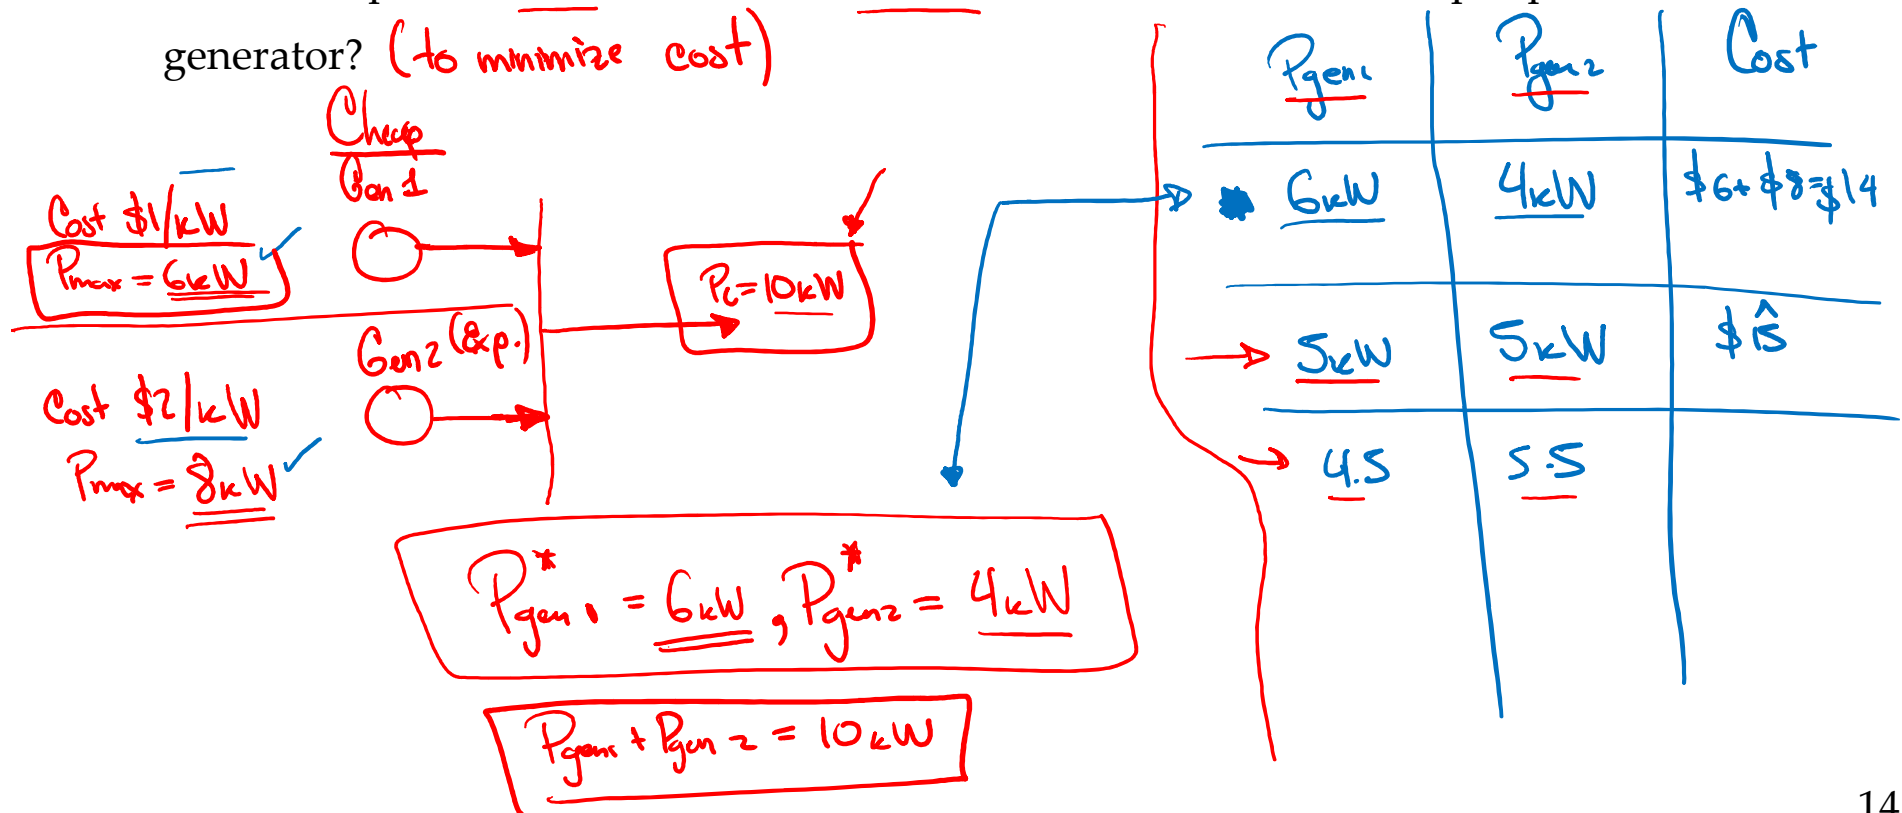 generator? (to minimize cost)
Cheap
Gen 1
Cost $1/kW
Pmax = 6kW
Gen 2 (Exp.)
Cost $2/kW
Pmax = 8kW
PL = 10kW
P*gen1 = 6kW, P*gen2 = 4kW
Pgen1 + Pgen2 = 10kW
Pgen1 Pgen2 Cost
6kW 4kW $6+$8=$14
5kW 5kW $15
4.5 5.5
14